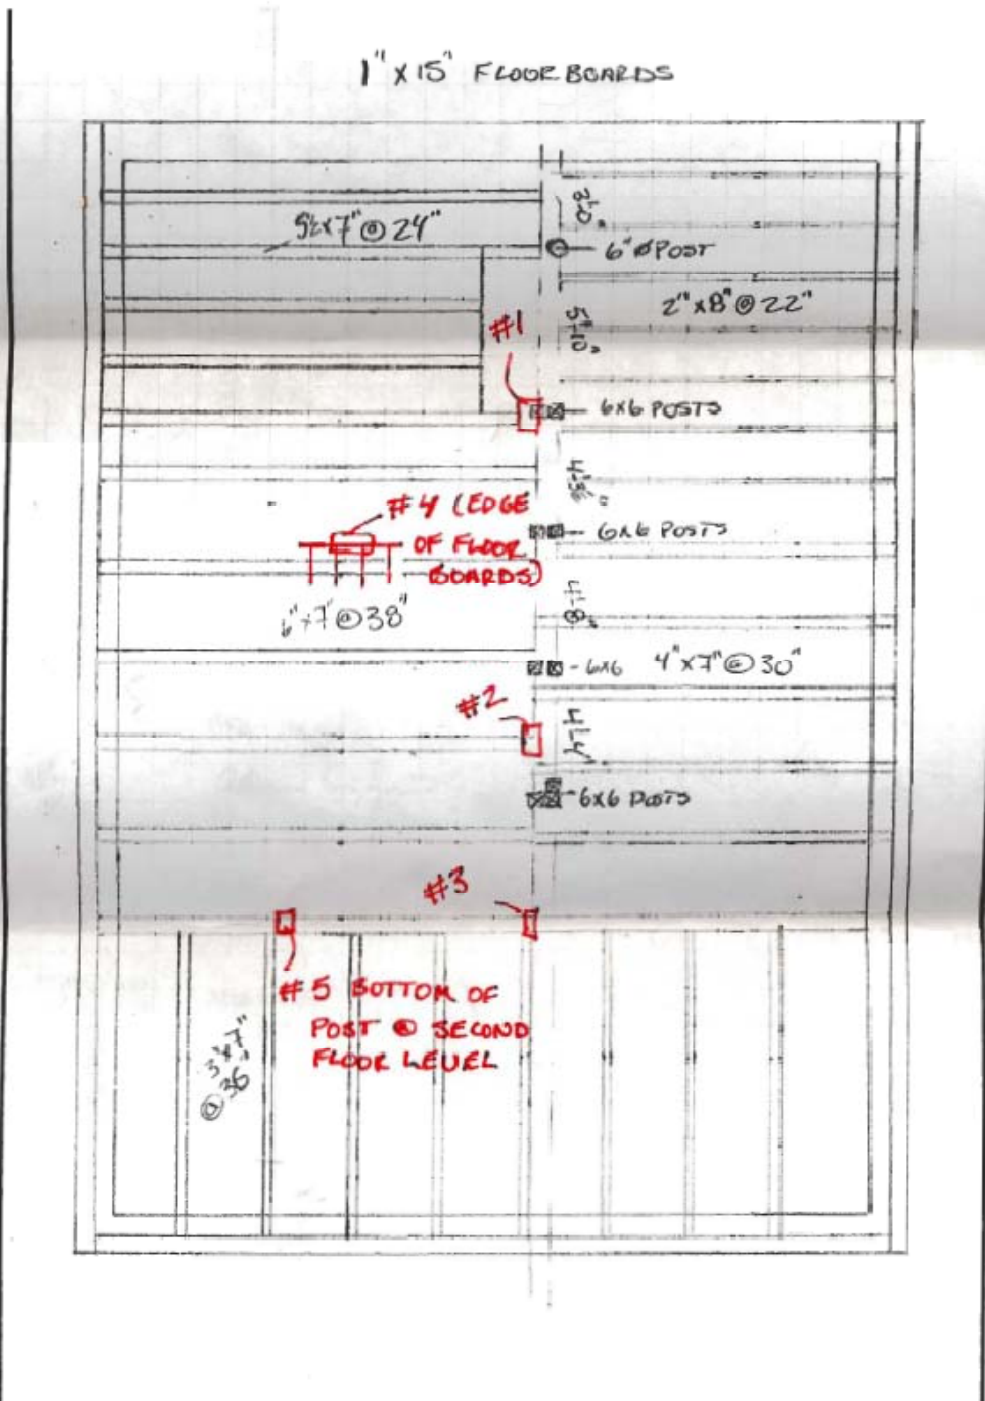 1" X 15" FLOOR BOARDS
5½x7" @ 24"
3'-0"
6" Ø POST
2" x 8" @ 22"
5'-10"
#1
6x6 POSTS
#4 (EDGE
OF FLOOR
BOARDS)
6x6 POSTS
6" x 7" @ 38"
4'-8"
- 6x6
4" x 7" @ 30"
#2
4'-4"
- 6x6 POSTS
#3
#5 BOTTOM OF
POST @ SECOND
FLOOR LEVEL
@ 36"